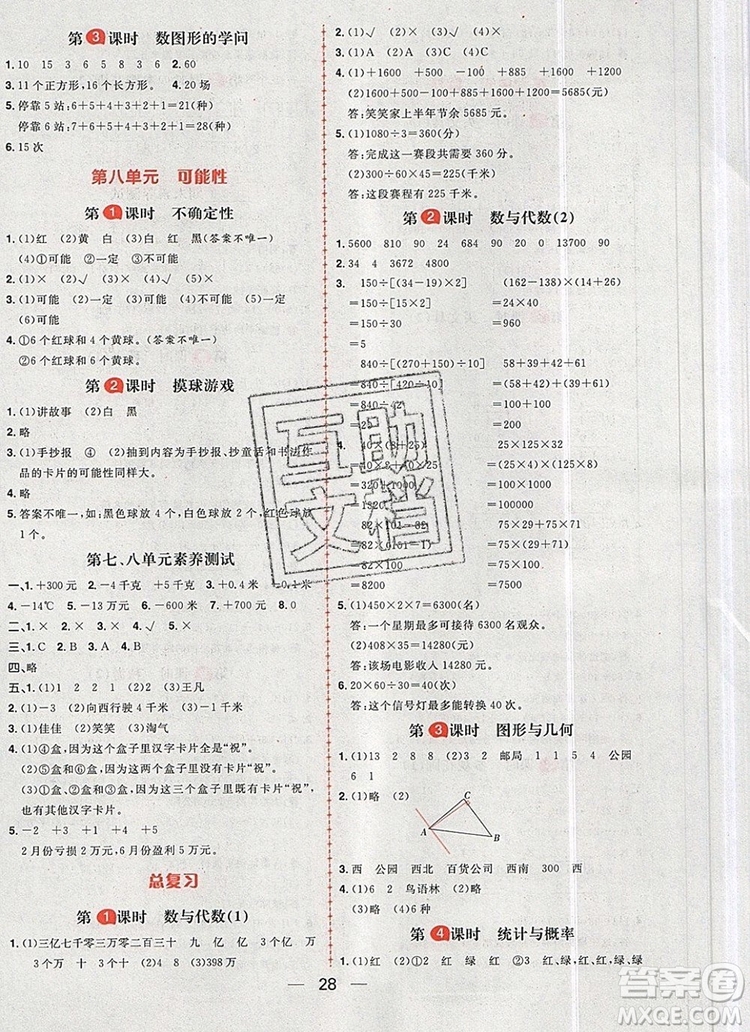 第3课时 数图形的学问
1. 10 15 3 6 3 5 8 3 6 2. 60
3. 11个正方形,16个长方形。 4. 20场
5. 停靠6站:6+5+4+3+2+1=21(种)
停靠7站:7+6+5+4+3+2+1=28(种)
6. 15次
第八单元 可能性
第1课时 不确定性
1. (1)红 (2)黄 白 (3)白 红 黑(答案不唯一)
(4)①可能 ②一定 ③不可能
2. (1)× (2)√ (3)√ (4)×
3. (1)可能 (2)一定 (3)可能 (4)可能 (5)一定
(6)不可能
4. ①6个红球和4个黄球。(答案不唯一)
②6个红球和6个黄球。
第2课时 摸球游戏
1. (1)讲故事 (2)白 黑
2. 略
3. (1)手抄报 ④ (2)抽到内容为手抄报、抄童话和书法作
品的卡片的可能性同样大。
4. 略
5. 答案不唯一,如:黑色球放4个,白色球放1个,红色球放
1个。
第七、八单元素养测试
一、1. +300元 2. -4千克 +5千克 3. +0.4米 -0.1米
4. -14℃ 5. -5万元 6. +2万元 7. +700元 8. -2
二、1. × 2. × 3. × 4. √ 5. × 三、1. C 2. B 3. A
四、略
五、1. (1)1 2 2 1 (2)王凡
2. (1)-2千米 (2)向西行驶4千米 (3)-9千米
3. (1)佳佳 (2)笑笑 (3)淘气
4. (1)④盒,因为这个盒子里汉字卡片全是“祝”。
(2)⑤盒,因为这个盒子里没有汉字卡片“祝”。
(3)①②③盒,因为这三个盒子里不仅有汉字卡片“祝”,
还有其他汉字卡片。
5. -2 +3 -1 +4 +5
2月份亏损2万元,5月份盈利5万元。
总复习
第1课时 数与代数(1)
1. (1)三亿七千零三万零二百三十 九 亿 亿 3个亿 万
3个万 3个十 (2)4 (3)398万
2. (1)√ (2)√ (3)× (4)√
3. (1)A (2)C (3)A (4)A
4. (1)+1600 +1600 -500 +1600 +585 +800
(2)1600+1600-500+1600+585+800=5685(元)
答:笑笑家上半年节余5685元。
5. (1)1080÷3=360(分)
答:完成这一赛段共需要360分。
(2)360÷24×15=225(千米)
答:这段赛程有225千米。
第2课时 数与代数(2)
1. 5600 810 90 24 60 20 90 20 0 13700 90
2. 34 4 3672 4800
3. 150÷[(34-19)×2] (162-138)×(25+15)
=150÷[15×2] =24×40
=150÷30 =960
=5
840÷[(420+70)÷10] 58+39+42+61
 =(58+42)+(39+61)
 =100+100
 =200
4. 40×(8+25) 25×125×32
 =25×4×(125×8)
 =100×1000
 =100000
82×101-82 7500÷4÷25
 =7500÷(4×25)
=82×100 =7500÷100
=8200 =75
5. (1)450×2×7=6300(名)
答:一个星期最多可接待6300名观众。
(2)408×35=14280(元)
答:该场电影收入14280元。
6. 20×60÷30=40(次)
答:这个信号灯最多能转换40次。
第3课时 图形与几何
1. (1)13 2 8 8 (2)3 2 邮局 1 5 4 4 公园
6 1
2. (1)略 (2)
C
A
B
3. 西 公园 西北 百货公司 西南 300 西
4. (1)6 2 鸟语林 (2)(3)略
5. (1)略 (2)略 (3)略 (4)6种
第4课时 统计与概率
1. (1)红 (2)白 红 (3)红 (4)红,绿 红,红,红,绿,绿
28
互助文档
答案圈
MXQE.COM